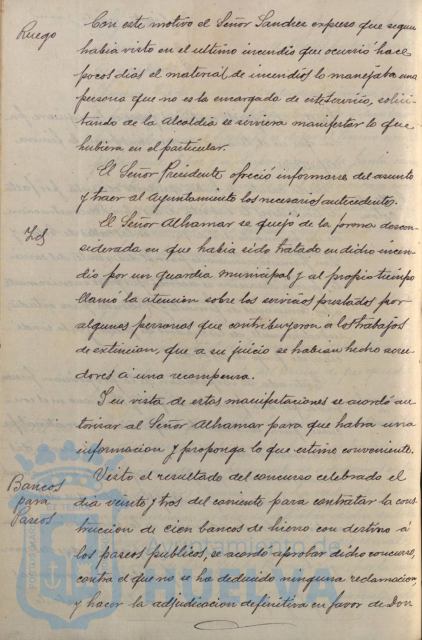 Ruego
Con este motivo el Señor Sanchez expuso que segun
habia visto en el ultimo incendio que ocurrió hace
pocos dias el material de incendios lo manejaba una
persona que no es la encargada de este servicio, solici-
tando de la Alcaldia se sirviera manifestar lo que
hubiera en el particular.
El Señor Presidente ofreció informarse del asunto
y traer al Ayuntamiento los necesarios antecedentes.
Id
El Señor Alhamar se quejó de la forma descon-
siderada en que habia sido tratado en dicho incen-
dio por un guardia municipal y al propio tiempo
llamó la atencion sobre los servicios prestados por
algunas personas que contribuyeron á los trabajos
de extincion, que a su juicio se habian hecho acree-
dores á una recompensa.
Y en vista de estas manifestaciones se acordó au-
torizar al Señor Alhamar para que habra una
informacion y proponga lo que estime conveniente.
Bancos
para
Paseos
Visto el resultado del concurso celebrado el
dia veinte y tres del corriente para contratar la cons-
truccion de cien bancos de hierro con destino á
los paseos publicos, se acordó aprobar dicho concurso,
contra el que no se ha deducido ninguna reclamacion,
y hacer la adjudicacion definitiva en favor de Don
Ayuntamiento de
HUELVA